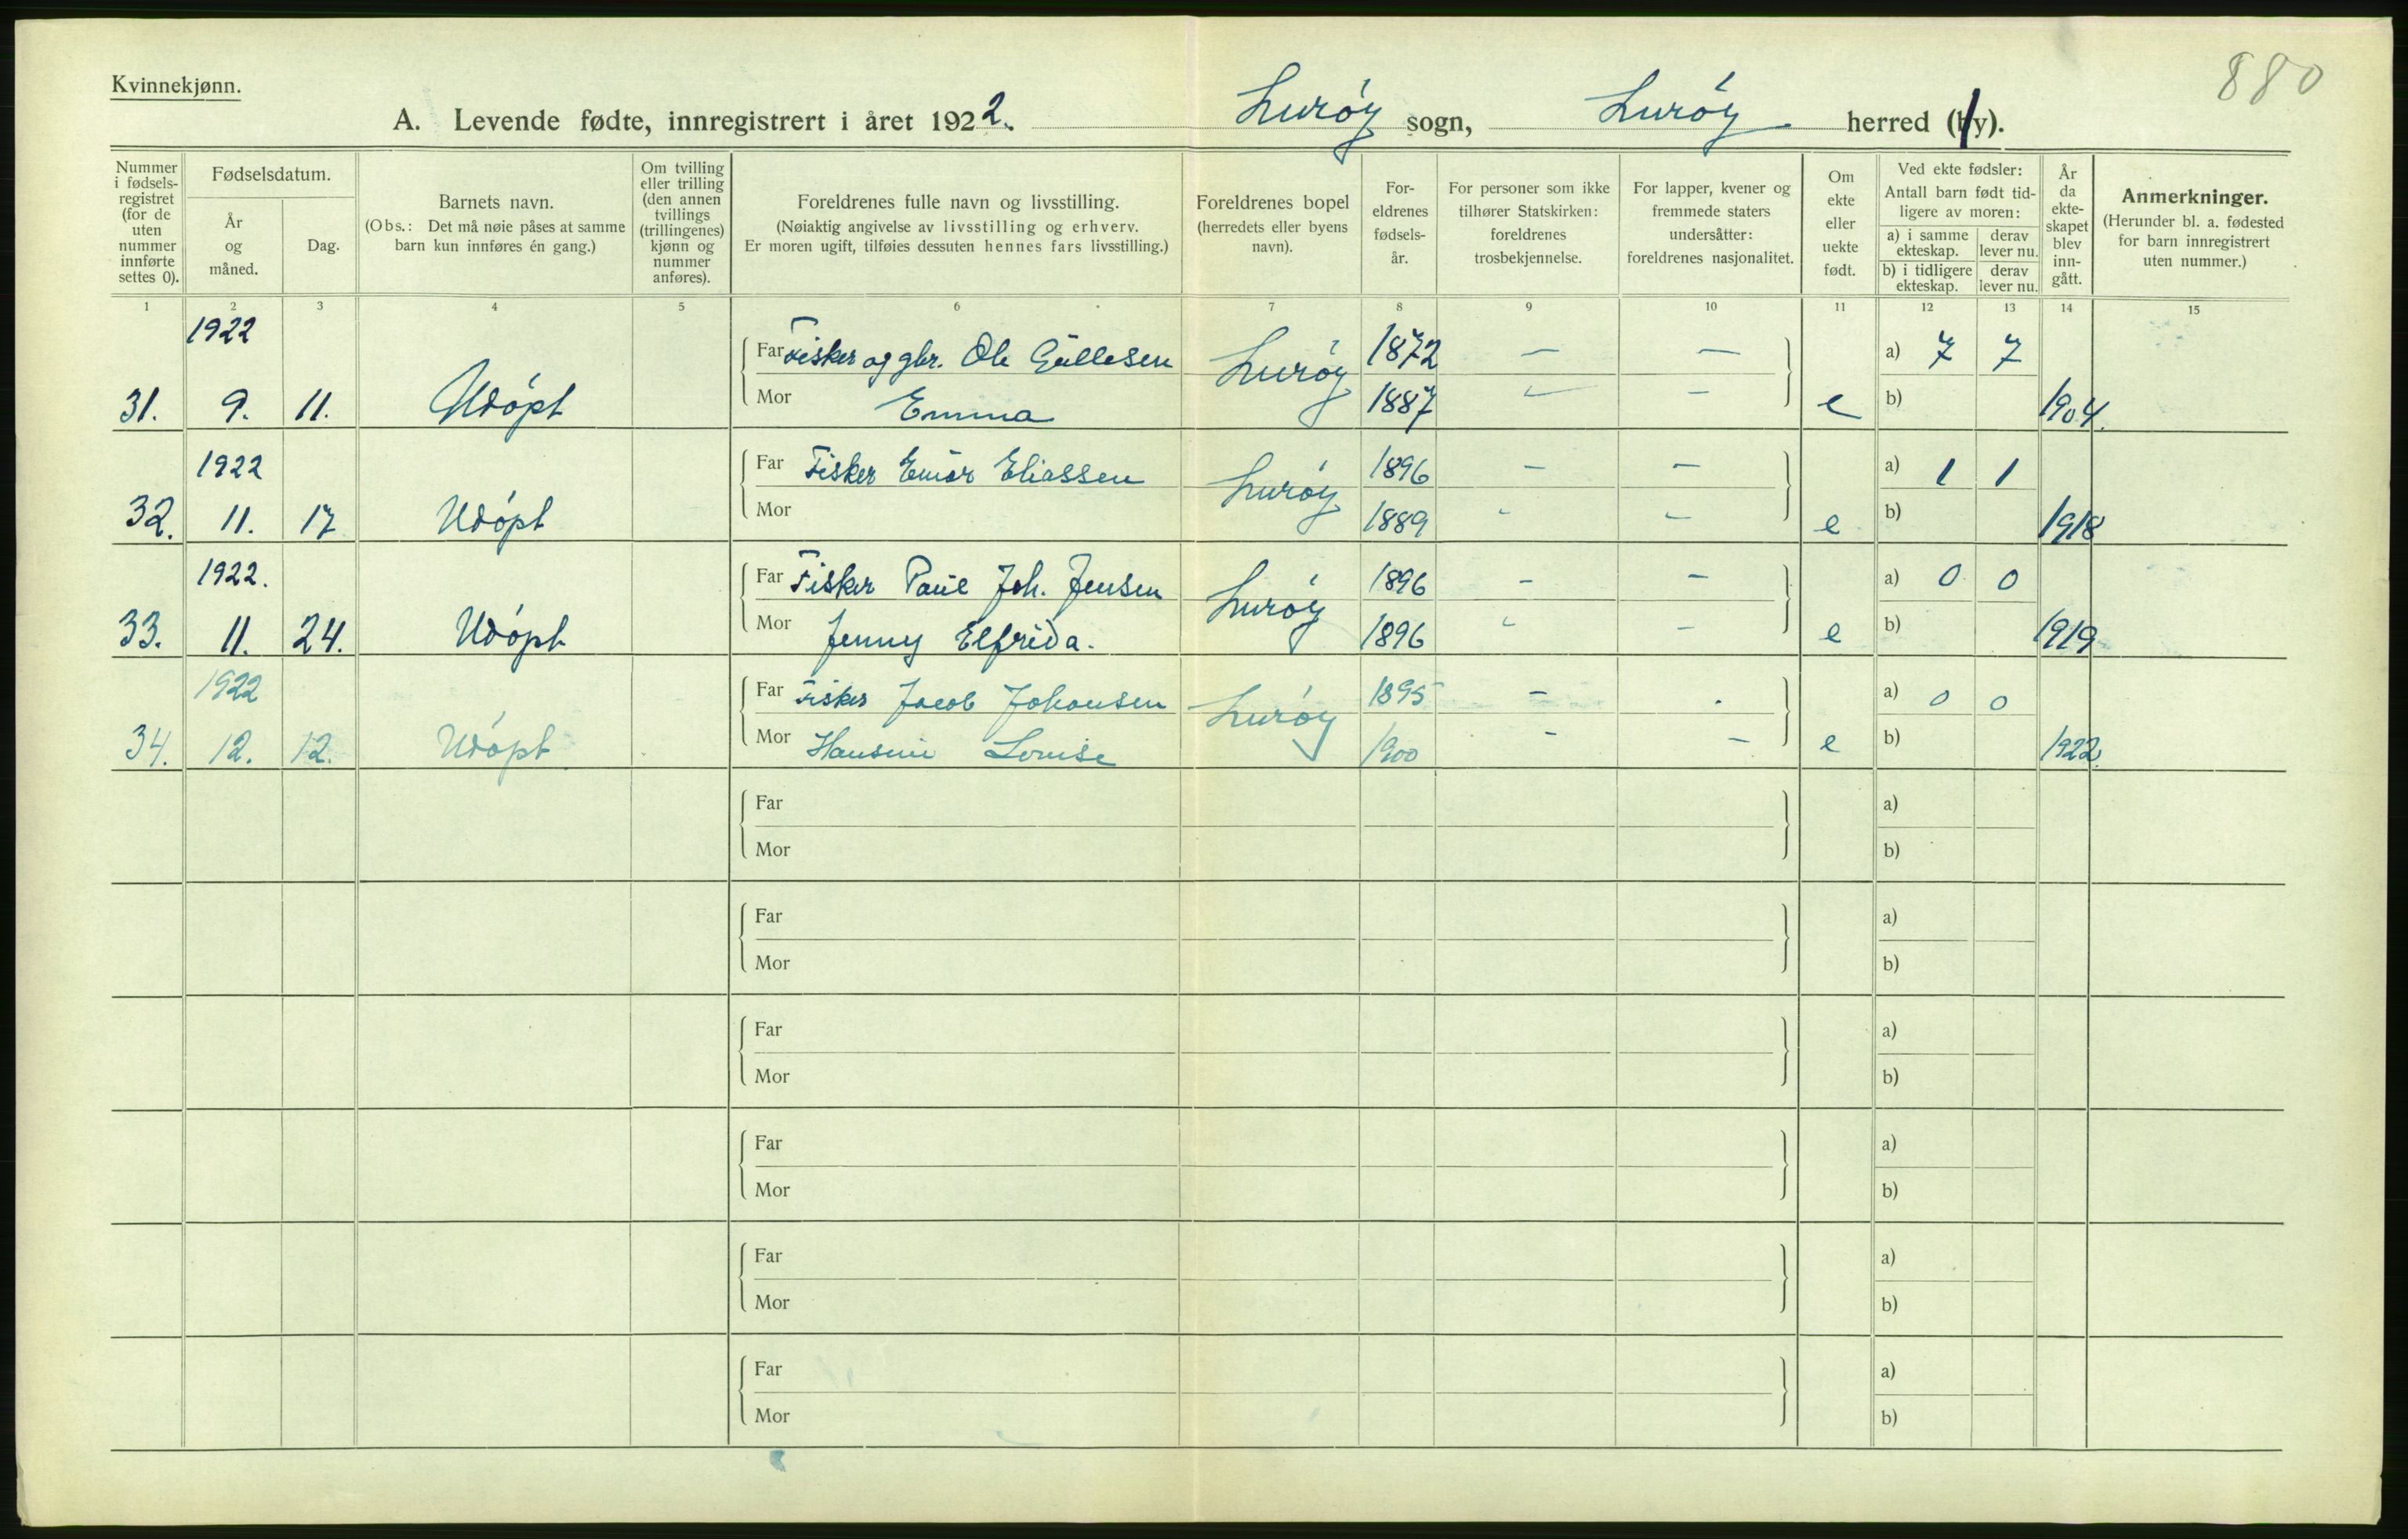 880
Kvinnekjønn.
A. Levende fødte, innregistrert i året 1922. Lurøy sogn, Lurøy herred (by).
Nummer i fødsels-registret (for de uten nummer innførte settes 0).
Fødselsdatum.
År og måned.
Dag.
Barnets navn.
(Obs.: Det må nøie påses at samme barn kun innføres én gang.)
Om tvilling eller trilling (den annen tvillings (trillingenes) kjønn og nummer anføres).
Foreldrenes fulle navn og livsstilling.
(Nøiaktig angivelse av livsstilling og erhverv.
Er moren ugift, tilføies dessuten hennes fars livsstilling.)
Foreldrenes bopel
(herredets eller byens navn).
For-eldrenes fødsels-år.
For personer som ikke tilhører Statskirken: foreldrenes trosbekjennelse.
For lapper, kvener og fremmede staters undersåtter: foreldrenes nasjonalitet.
Om ekte eller uekte født.
Ved ekte fødsler: Antall barn født tid-ligere av moren:
a) i samme ekteskap.
derav lever nu.
b) i tidligere ekteskap.
derav lever nu.
År da ekte-skapet blev inn-gått.
Anmerkninger.
(Herunder bl. a. fødested for barn innregistrert uten nummer.)
1 2 3 4 5 6 7 8 9 10 11 12 13 14 15
1922
Far Fisker og gbr. Ole Gullesen Lurøy 1872 — — a) 7 7
31. 9. 11. Udøpt Mor Emma 1887 — — e b) 1904.
1922
Far Fisker Einar Eliassen Lurøy 1896 — — a) 1 1
32. 11. 17 Udøpt Mor 1889 - - e b) 1918
1922.
Far Fisker Paul Joh. Jensen Lurøy 1896 - - a) 0 0
33. 11. 24. Udøpt Mor Jenny Elfrida. 1896 - - e b) 1919
1922
Far Fisker Jacob Johansen Lurøy 1895 - . a) 0 0
34. 12. 12. Udøpt Mor Hansine Louise 1900 - - e b) 1922.
Far a)
Mor b)
Far a)
Mor b)
Far a)
Mor b)
Far a)
Mor b)
Far a)
Mor b)
Far a)
Mor b)